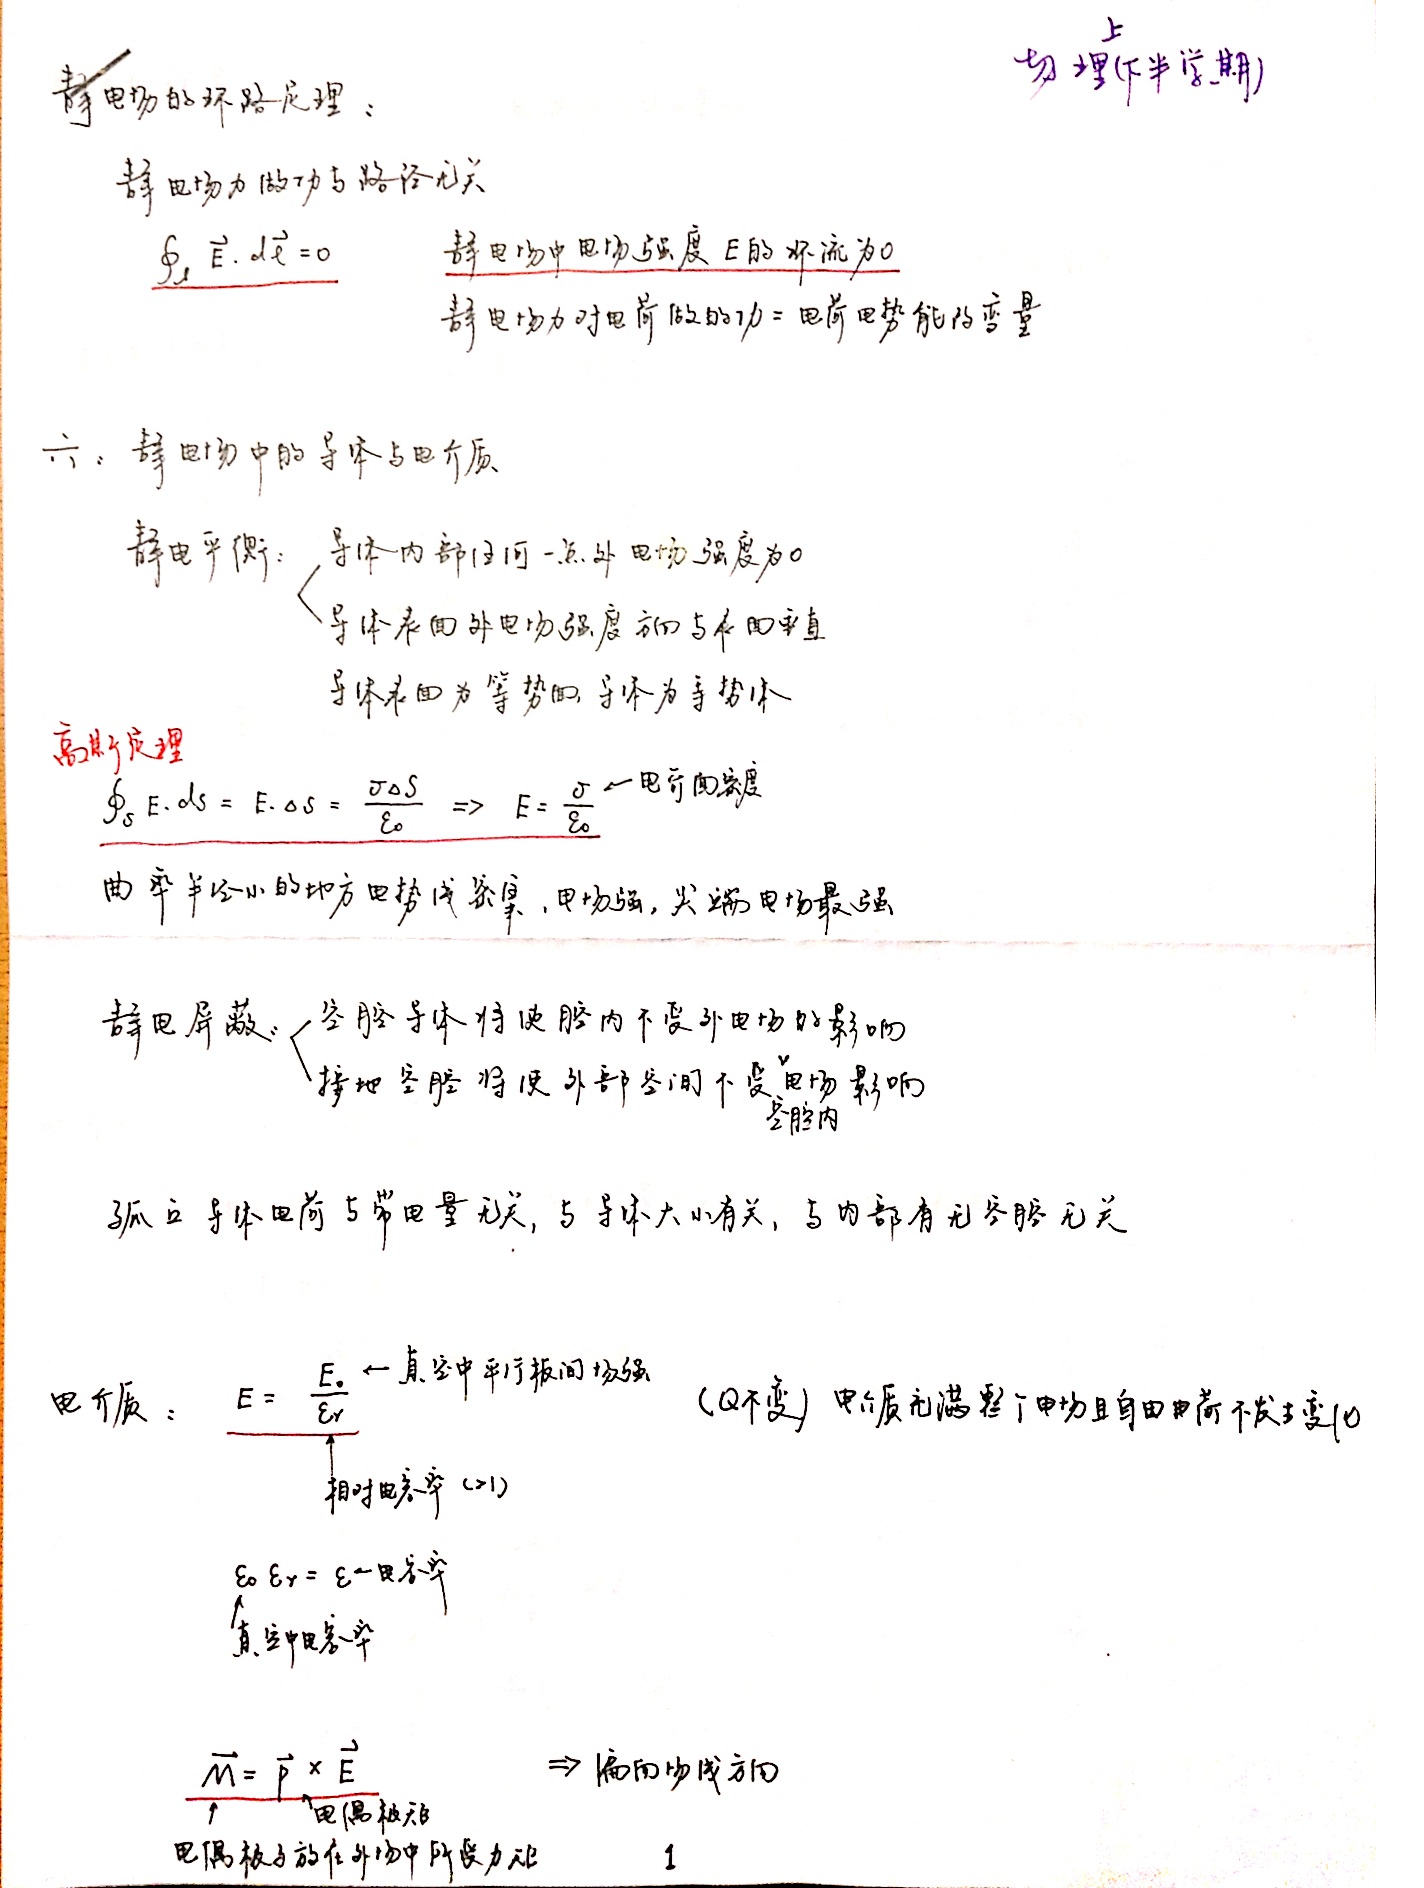 物理上(下半学期)
静电场的环路定理：
静电场力做功与路径无关
∮ₗ E⃗·dl⃗ = 0 静电场中电场强度E的环流为0
静电场力对电荷做的功 = 电荷电势能改变量
六：静电场中的导体与电介质
静电平衡：导体内部任何一点处电场强度为0
导体表面处电场强度方向与表面垂直
导体表面为等势面，导体为等势体
高斯定理
∮ₛ E·ds = E·△S = σ△S/ε₀ => E = σ/ε₀ ←电荷面密度
曲率半径小的地方电势线密集，电场强，尖端电场最强
静电屏蔽：空腔导体将使腔内不受外电场的影响
接地空腔将使外部空间不受空腔内电场影响
孤立导体电荷与带电量无关，与导体大小有关，与内部有无空腔无关
电介质： E = E₀/εr ←真空中平行板间场强 (Q不变) 电介质充满整个电场且自由电荷不发生变化
相对电容率 (>1)
ε₀ εr = ε ←电容率
真空中电容率
M⃗ = P⃗ × E⃗ => 偏向场线方向
电偶极矩
电偶极子放在外场中所受力矩
1